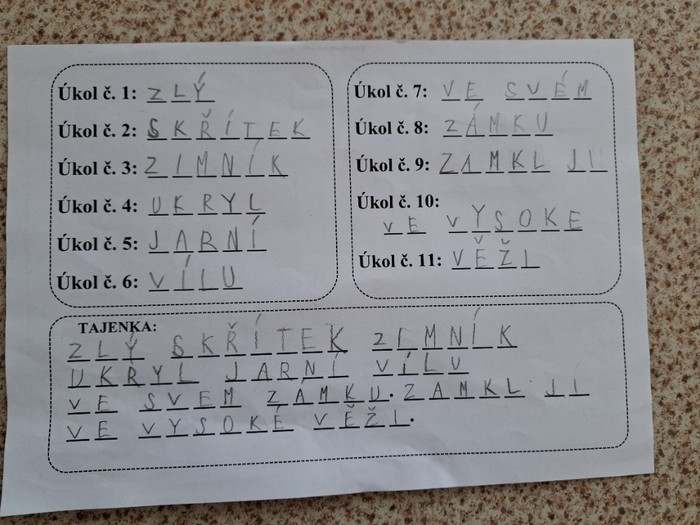 Úkol č. 1: ZLÝ
Úkol č. 2: SKŘÍTEK
Úkol č. 3: ZIMNÍK
Úkol č. 4: UKRYL
Úkol č. 5: JARNÍ
Úkol č. 6: VÍLU
Úkol č. 7: VE SVÉM
Úkol č. 8: ZÁMKU
Úkol č. 9: ZAMKL JI
Úkol č. 10:
VE VYSOKE
Úkol č. 11: VĚŽI
TAJENKA:
ZLÝ SKŘÍTEK ZIMNÍK
UKRYL JARNÍ VÍLU
VE SVEM ZÁMKU. ZAMKL JI
VE VYSOKÉ VĚŽI.